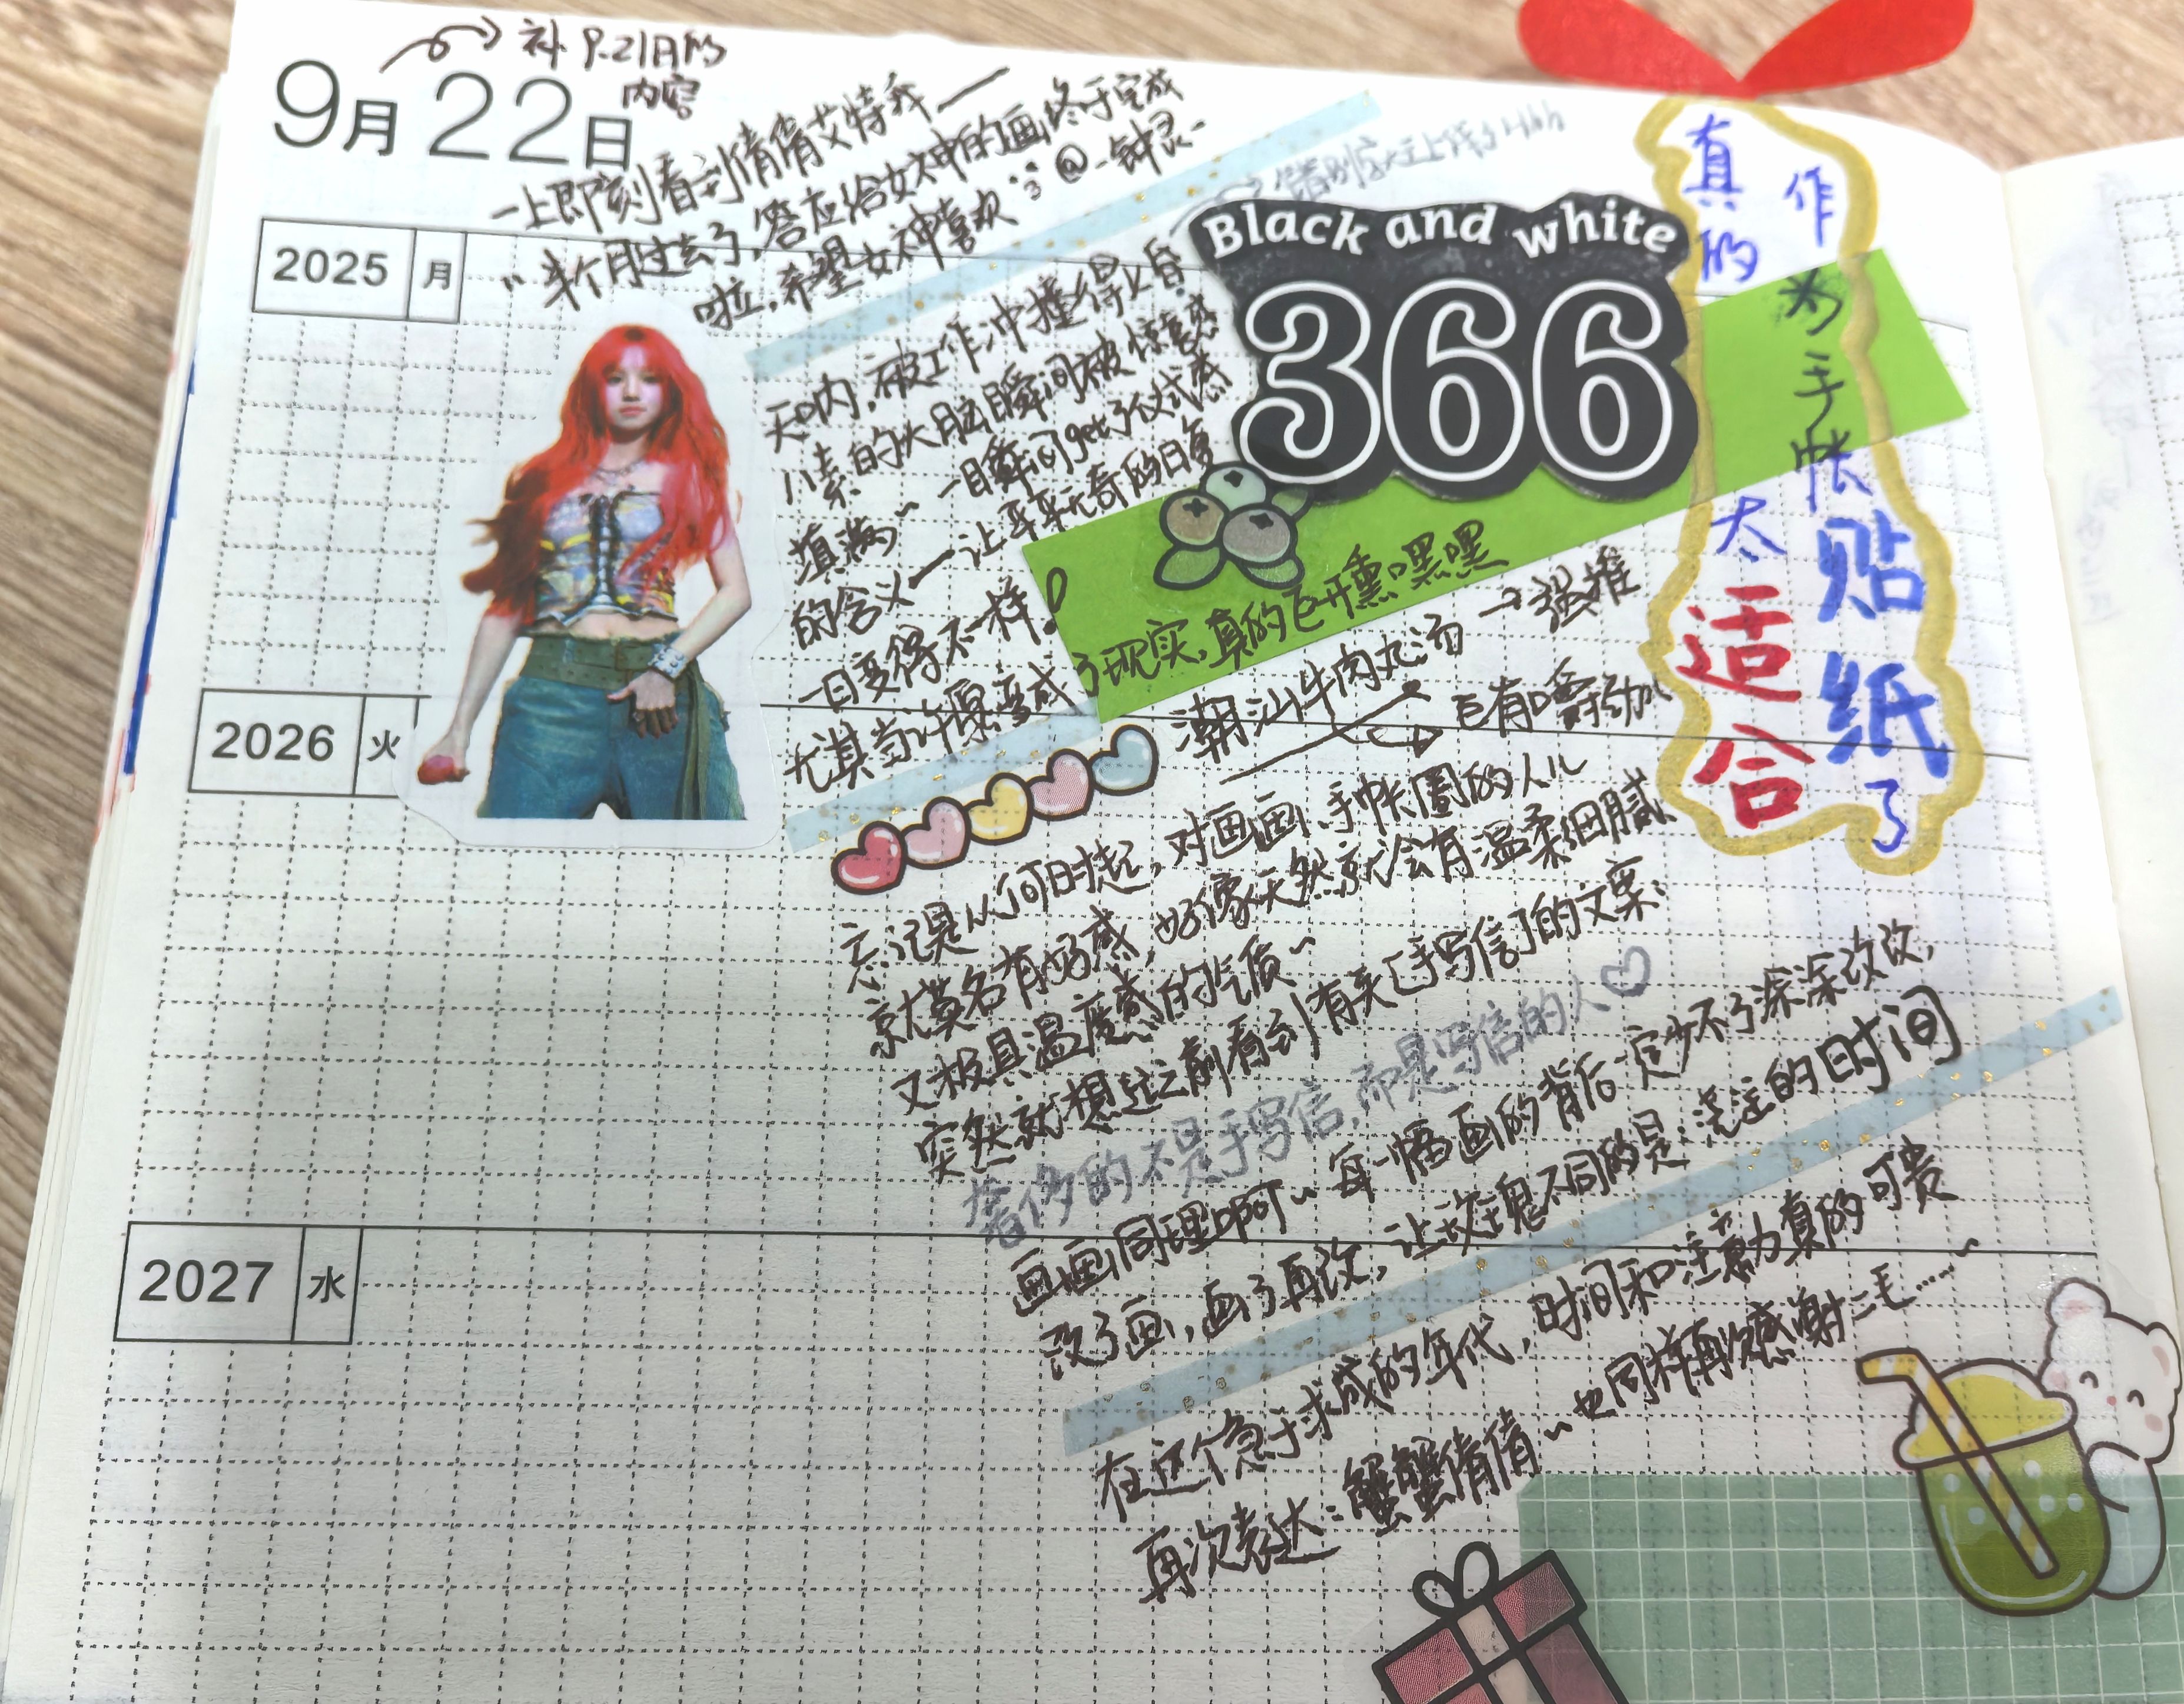 9月22日
补9.21日的
内容
一上即刻看到倩倩艾特我——
“半个月过去了,答应给女神的画终于完成
啦,希望女神喜欢 :3 @-钟灵-
2025 月
天呐,被工作冲撞得火昏
八素的大脑瞬间被惊喜感
填满~ 一瞬间get了仪式感
的含义—让平平无奇的日复
一日变得不一样!
尤其当许愿变成
了现实,真的巨开熏嘿嘿
Black and white
366
真的
太
适合
作为手帐
贴纸
了
潮汕牛肉丸汤 → 强推
巨有嚼劲儿
2026 火
忘记是从何时起,对画画、手帐圈的人儿
就莫名有好感,好像天然就会有温柔细腻、
又极具温度感的气质~
突然就想起之前看到有关「手写信」的文案:
奢侈的不是手写信,而是写信的人♡
画画同理啊~ 每一幅画的背后一定少不了涂涂改改,
改了画,画了再改,让故事愈不同的是:浇注的时间
2027 水
在这个急于求成的年代,时间和注意力真的可贵
再次表达:蟹蟹倩倩~也同样再次感谢二毛……~